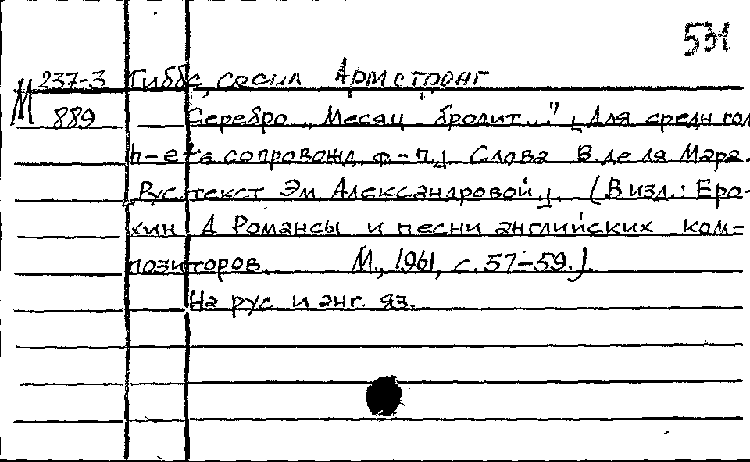 531
М 237-3 Гиббс, Сесил Армстронг
889 Серебро „Месяц бродит..." [Для средн гол
h-e² а сопровожд. ф-п.] Слова В. де ля Мара.
[Рус. текст Эм Александровой]. (В изд.: Еро-
хин А Романсы и песни английских ком-
позиторов. М., 1961, с. 57-59.).
На рус и анг. яз.